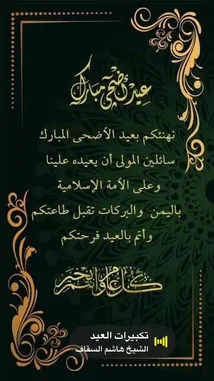 عيد أضحى مبارك
نهنئكم بعيد الأضحى المبارك
سائلين المولى أن يعيده علينا
وعلى الأمة الإسلامية
باليمن والبركات تقبل طاعتكم
وأتم بالعيد فرحتكم
كل عام وأنتم بخير
تكبيرات العيد
الشيخ هاشم السقاف